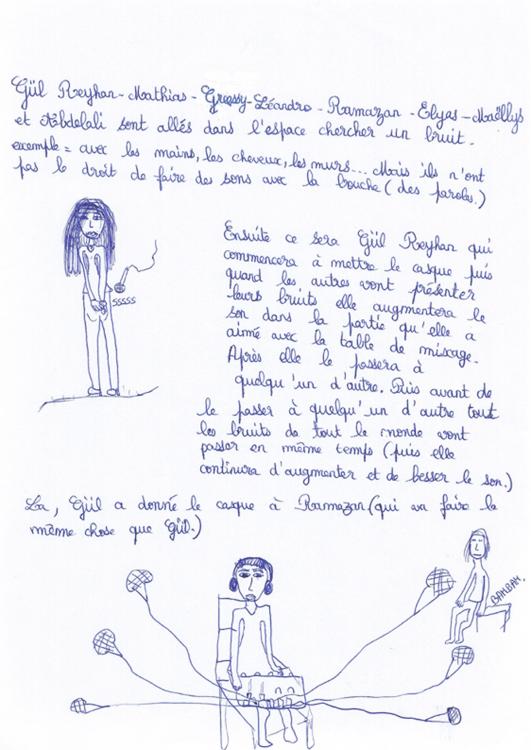 Gül Reyhan - Mathias - Greessy - Léandro - Ramazan - Elyas - Maëllys
et Abdelali sont allés dans l'espace chercher un bruit.
exemple = avec les mains, les cheveux, les murs... Mais ils n'ont
pas le droit de faire des sons avec la bouche (des paroles.)
sssss
Ensuite ce sera Gül Reyhan qui
commencera à mettre le casque puis
quand les autres vont présenter
leurs bruits elle augmentera le
son dans la partie qu'elle a
aimé avec la table de mixage.
Après elle le passera à
quelqu'un d'autre. Puis avant de
le passer à quelqu'un d'autre tout
les bruits de tout le monde vont
passer en même temps (puis elle
continura d'augmenter et de besser le son.)
La, Gül a donné le casque à Ramazan (qui va faire la
même chose que Gül.)